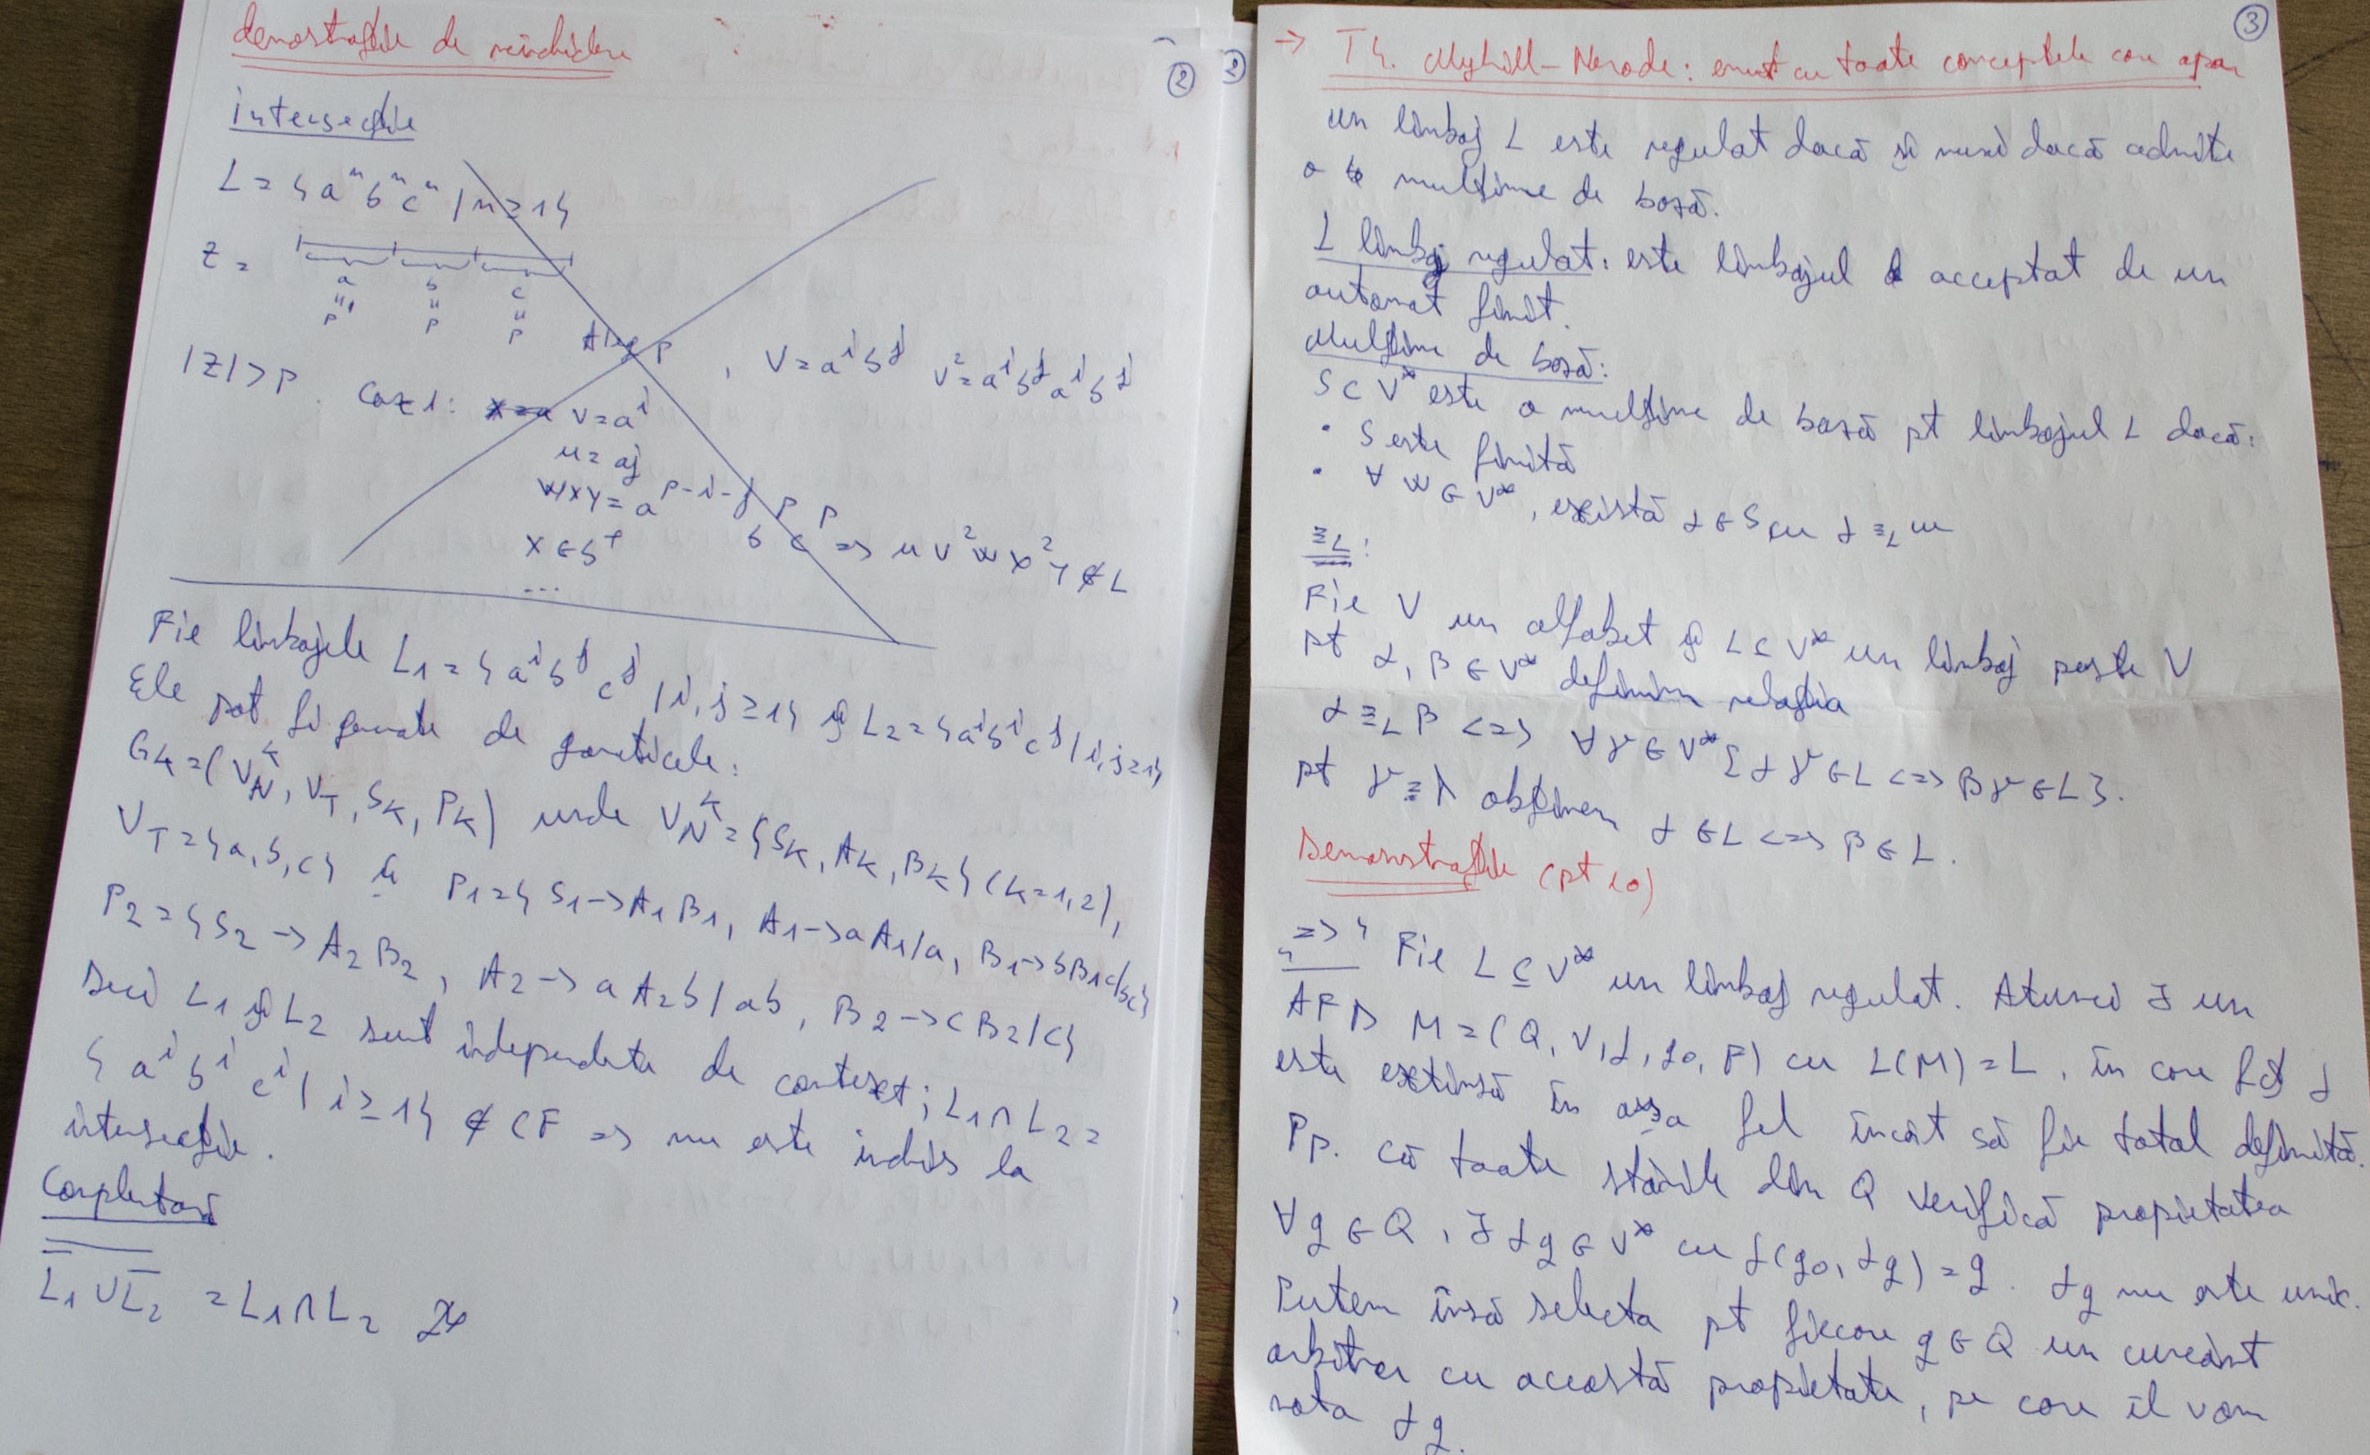 demostrațiile de neînchidere
②
intersecție
L = {aⁿbⁿcⁿ / n ≥ 1}
z =
a b c
p p p
|z| > p. Caz 1: v = aⁱ , v = aⁱbʲ v² = aⁱbʲaⁱbʲ
u = aj
wxy = a^(p-i-j) b^p c^p => uv²wx²y ∉ L
x ∈ b⁺
...
Fie limbajele L₁ = {aⁱbʲcʲ / i, j ≥ 1} și L₂ = {aⁱbⁱcʲ / i, j ≥ 1}
Ele pot fi generate de gramaticile:
G_K = (V_N^K, V_T, S_K, P_K) unde V_N^K = {S_K, A_K, B_K} (K = 1, 2),
V_T = {a, b, c} și P₁ = {S₁ -> A₁B₁, A₁ -> aA₁/a, B₁ -> bB₁c/bc}
P₂ = {S₂ -> A₂B₂, A₂ -> aA₂b/ab, B₂ -> cB₂/c}
Deci L₁ și L₂ sunt independente de context; L₁ ∩ L₂ =
{aⁱbⁱcⁱ / i ≥ 1} ∉ CF => nu este închis la
intersecție.
Complementară
L̅₁̅ ̅∪̅ ̅L̅₂̅ = L₁ ∩ L₂
② ③
-> Th. Myhill-Nerode: enunț cu toate conceptele care apar
un limbaj L este regulat dacă și numai dacă admite
o mulțime de bază.
L limbaj regulat: este limbajul acceptat de un
automat finit.
Mulțime de bază:
S ⊂ V* este o mulțime de bază pt limbajul L dacă:
• S este finită
• ∀ w ∈ V*, există α ∈ S cu α ≡_L w
≡_L:
Fie V un alfabet și L ⊆ V* un limbaj peste V
pt α, β ∈ V* definim relația
α ≡_L β <=> ∀γ ∈ V* [αγ ∈ L <=> βγ ∈ L].
pt γ = λ obținem α ∈ L <=> β ∈ L.
Demonstrațiile (pt 10)
"=>" Fie L ⊆ V* un limbaj regulat. Atunci ∃ un
AFD M = (Q, V, δ, q₀, F) cu L(M) = L, în care fct δ
este extinsă în așa fel încât să fie total definită.
Pp. că toate stările din Q verifică proprietatea
∀q ∈ Q, ∃ α_q ∈ V* cu δ(q₀, α_q) = q. α_q nu este unic.
Putem însă selecta pt fiecare q ∈ Q un cuvânt
arbitrar cu această proprietate, pe care îl vom
nota α_q.